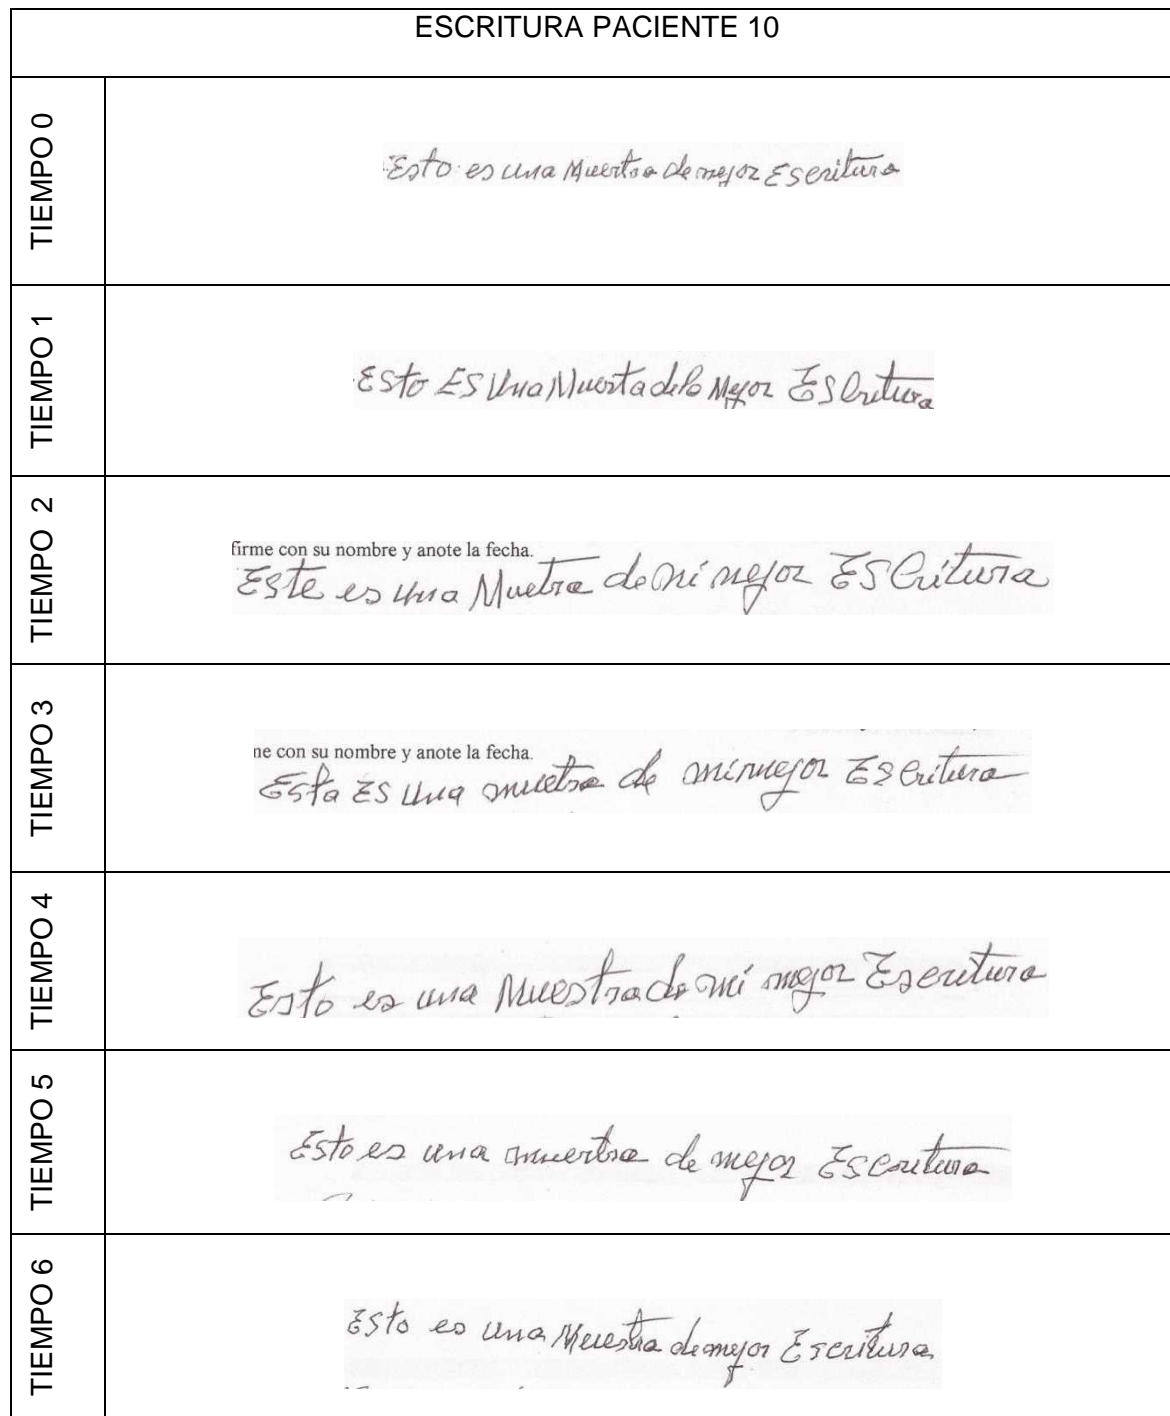 ESCRITURA PACIENTE 10
TIEMPO 0
Esto es una Muestra de mejor Escritura
TIEMPO 1
Esto ES Una Muesta de lo Mejor EScritura
TIEMPO 2
firme con su nombre y anote la fecha.
Este es una Muetra de mi mejor EScritura
TIEMPO 3
me con su nombre y anote la fecha.
Esta ES una muetra de mi mejor EScritura
TIEMPO 4
Esto es una Muestra de mi mejor Escritura
TIEMPO 5
Esto es una muestra de mejor EScritura
TIEMPO 6
ESto es una Muestra de mejor Escritura